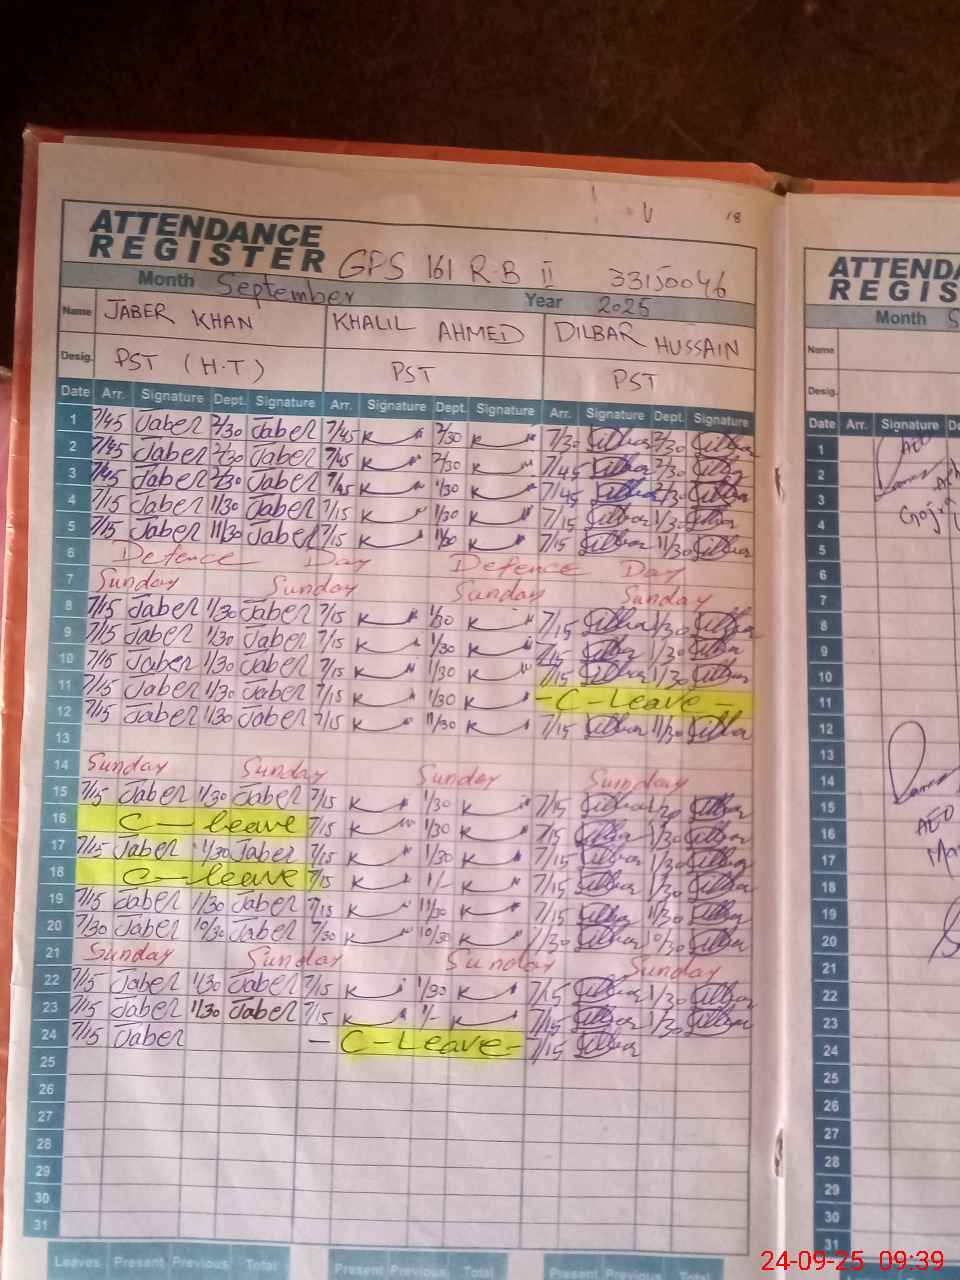 18
ATTENDANCE
REGISTER GPS 161 R-B II 33150046
Month September Year 2025
Name JABER KHAN KHALIL AHMED DILBAR HUSSAIN
Desig. PST (H-T) PST PST
Date Arr. Signature Dept. Signature Arr. Signature Dept. Signature Arr. Signature Dept. Signature
1 7/45 Jaber 2/30 Jaber 7/45 K 2/30 K 7/30 2/30
2 7/45 Jaber 2/30 Jaber 7/45 K 2/30 K 7/45 2/30
3 7/45 Jaber 2/30 Jaber 7/45 K 1/30 K 7/45 2/30
4 7/15 Jaber 1/30 Jaber 7/15 K 1/30 K 7/15 1/30
5 7/15 Jaber 11/30 Jaber 7/15 K 11/30 K 7/15 11/30
6 Defence Day Defence Day
7 Sunday Sunday Sunday Sunday
8 7/15 Jaber 1/30 Jaber 7/15 K 1/30 K 7/15 1/30
9 7/15 Jaber 1/30 Jaber 7/15 K 1/30 K 7/15 1/30
10 7/15 Jaber 1/30 Jaber 7/15 K 1/30 K 7/15 1/30
11 7/15 Jaber 1/30 Jaber 7/15 K 1/30 K - C-Leave -
12 7/15 Jaber 1/30 Jaber 7/15 K 11/30 K 7/15 11/30
13
14 Sunday Sunday Sunday Sunday
15 7/15 Jaber 1/30 Jaber 7/15 K 1/30 K 7/15
16 C-leave 7/15 K 1/30 K 7/15 1/30
17 7/15 Jaber 1/30 Jaber 7/15 K 1/30 K 7/15 1/30
18 C-leave 7/15 K 1/- K 7/15 1/30
19 7/15 Jaber 1/30 Jaber 7/15 K 11/30 K 7/15 11/30
20 7/30 Jaber 10/30 Jaber 7/30 K 10/30 K 7/30 10/30
21 Sunday Sunday Sunday Sunday
22 7/15 Jaber 1/30 Jaber 7/15 K 1/30 K 7/15 1/30
23 7/15 Jaber 1/30 Jaber 7/15 K 1/- K 7/15 1/30
24 7/15 Jaber - C-Leave- 7/15
25
26
27
28
29
30
31
Leaves Present Previous Total Present Previous Total Present Previous Total
ATTENDA
REGIS
Month S
Name
Desig.
Date Arr. Signature De
1 AEO
2
3
4
5
6
7
8
9
10
11
12
13
14
15
16 AEO
17
18
19
20
21
22
23
24
25
26
27
28
29
30
31
24-09-25 09:39